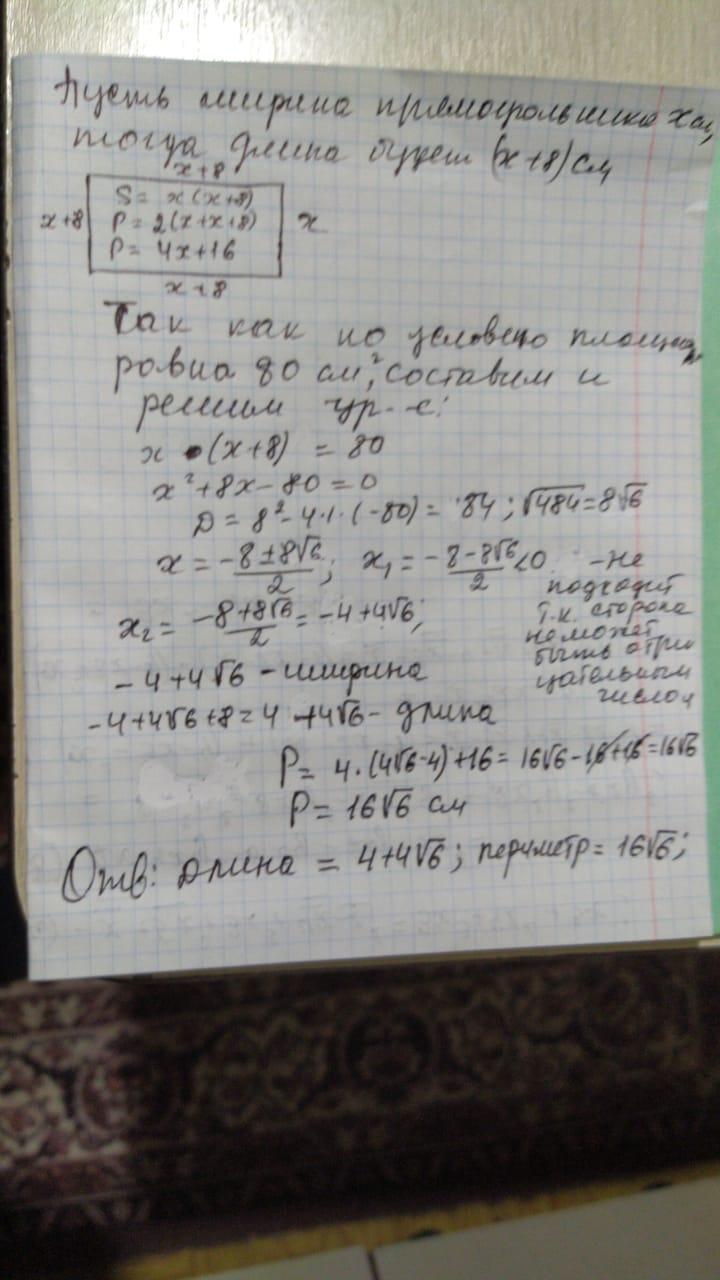 Пусть ширина прямоугольника x см,
тогда длина будет (x+8) см
x+8
S = x(x+8)
x+8 P = 2(x+x+8) x
P = 4x+16
x+8
Так как по условию площадь
равна 80 см², составим и
решим ур-е:
x•(x+8) = 80
x²+8x-80=0
D = 8²-4·1·(-80) = 84; √484=8√6
x = (-8±8√6)/2; x₁ = -(8-8√6)/2 <0 - не
подходит
т.к. сторона
не может
быть отри
цательным
числом
x₂ = (-8+8√6)/2 = -4+4√6;
-4+4√6 - ширина
-4+4√6+8=4+4√6- длина
P = 4·(4√6-4)+16= 16√6-16+16=16√6
P = 16√6 см
Отв: длина = 4+4√6; периметр= 16√6;